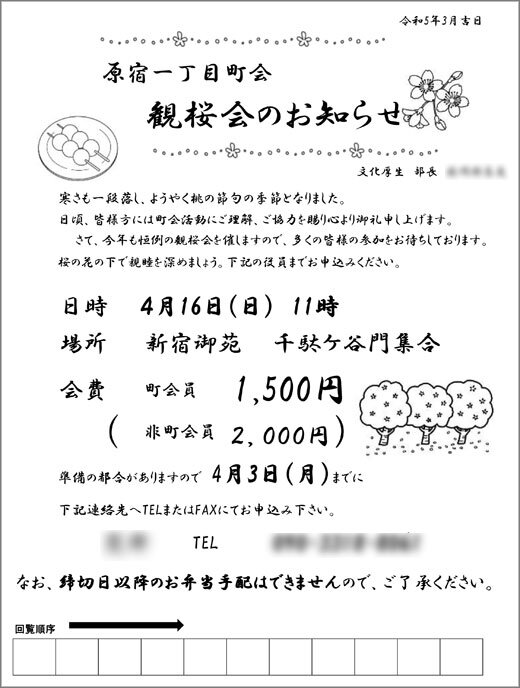 令和5年3月吉日
原宿一丁目町会
観桜会のお知らせ
文化厚生 部長
寒さも一段落し、ようやく桃の節句の季節となりました。
日頃、皆様方には町会活動にご理解、ご協力を賜り心より御礼申し上げます。
さて、今年も恒例の観桜会を催しますので、多くの皆様の参加をお待ちしております。
桜の花の下で親睦を深めましょう。下記の役員までお申込みください。
日時 4月16日(日) 11時
場所 新宿御苑 千駄ケ谷門集合
会費 町会員 1,500円
( 非町会員 2,000円)
準備の都合がありますので 4月3日(月)までに
下記連絡先へTELまたはFAXにてお申込み下さい。
TEL
なお、締切日以降のお弁当手配はできませんので、ご了承ください。
回覧順序